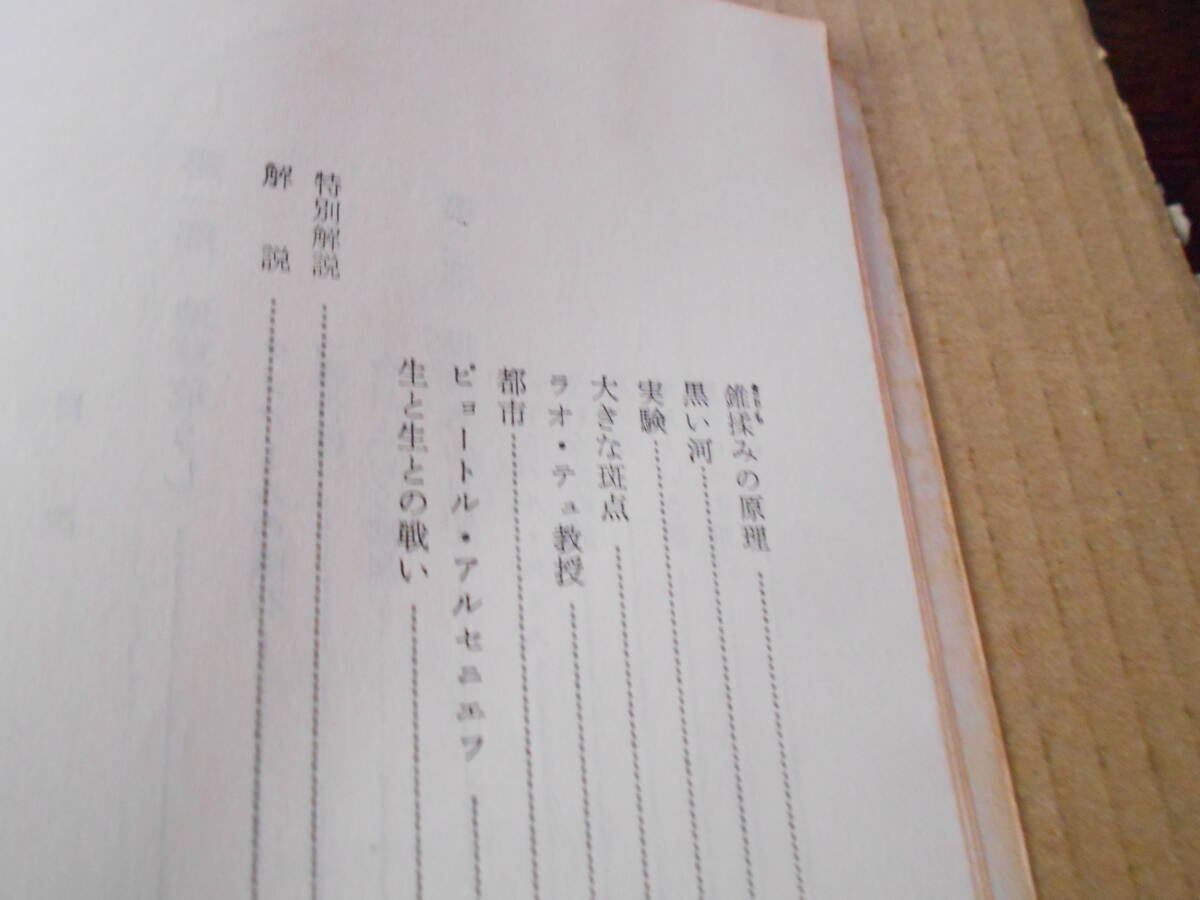 錐揉みの原理
黒い河
実験
大きな斑点
ラオ・テュ教授
都市
ピョートル・アルセニエフ
生と生との戦い
特別解説
解説